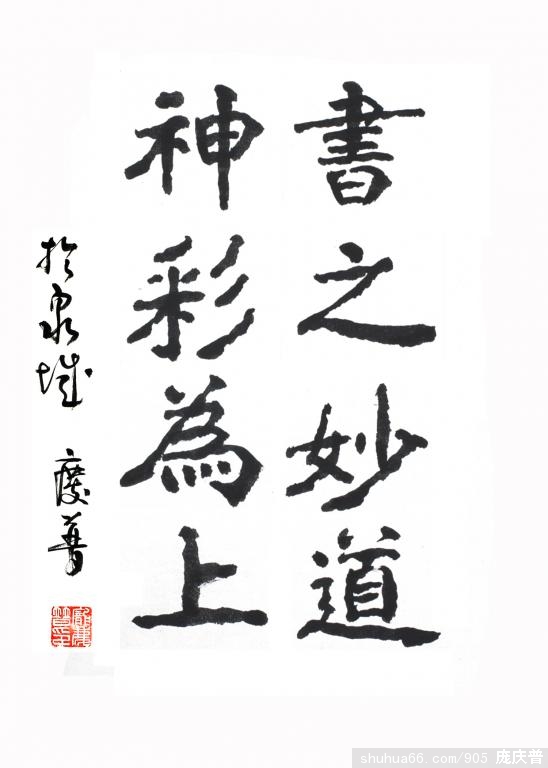 書之妙道
神彩為上
於泉城 慶普
shuhua66.com/905 庞庆普